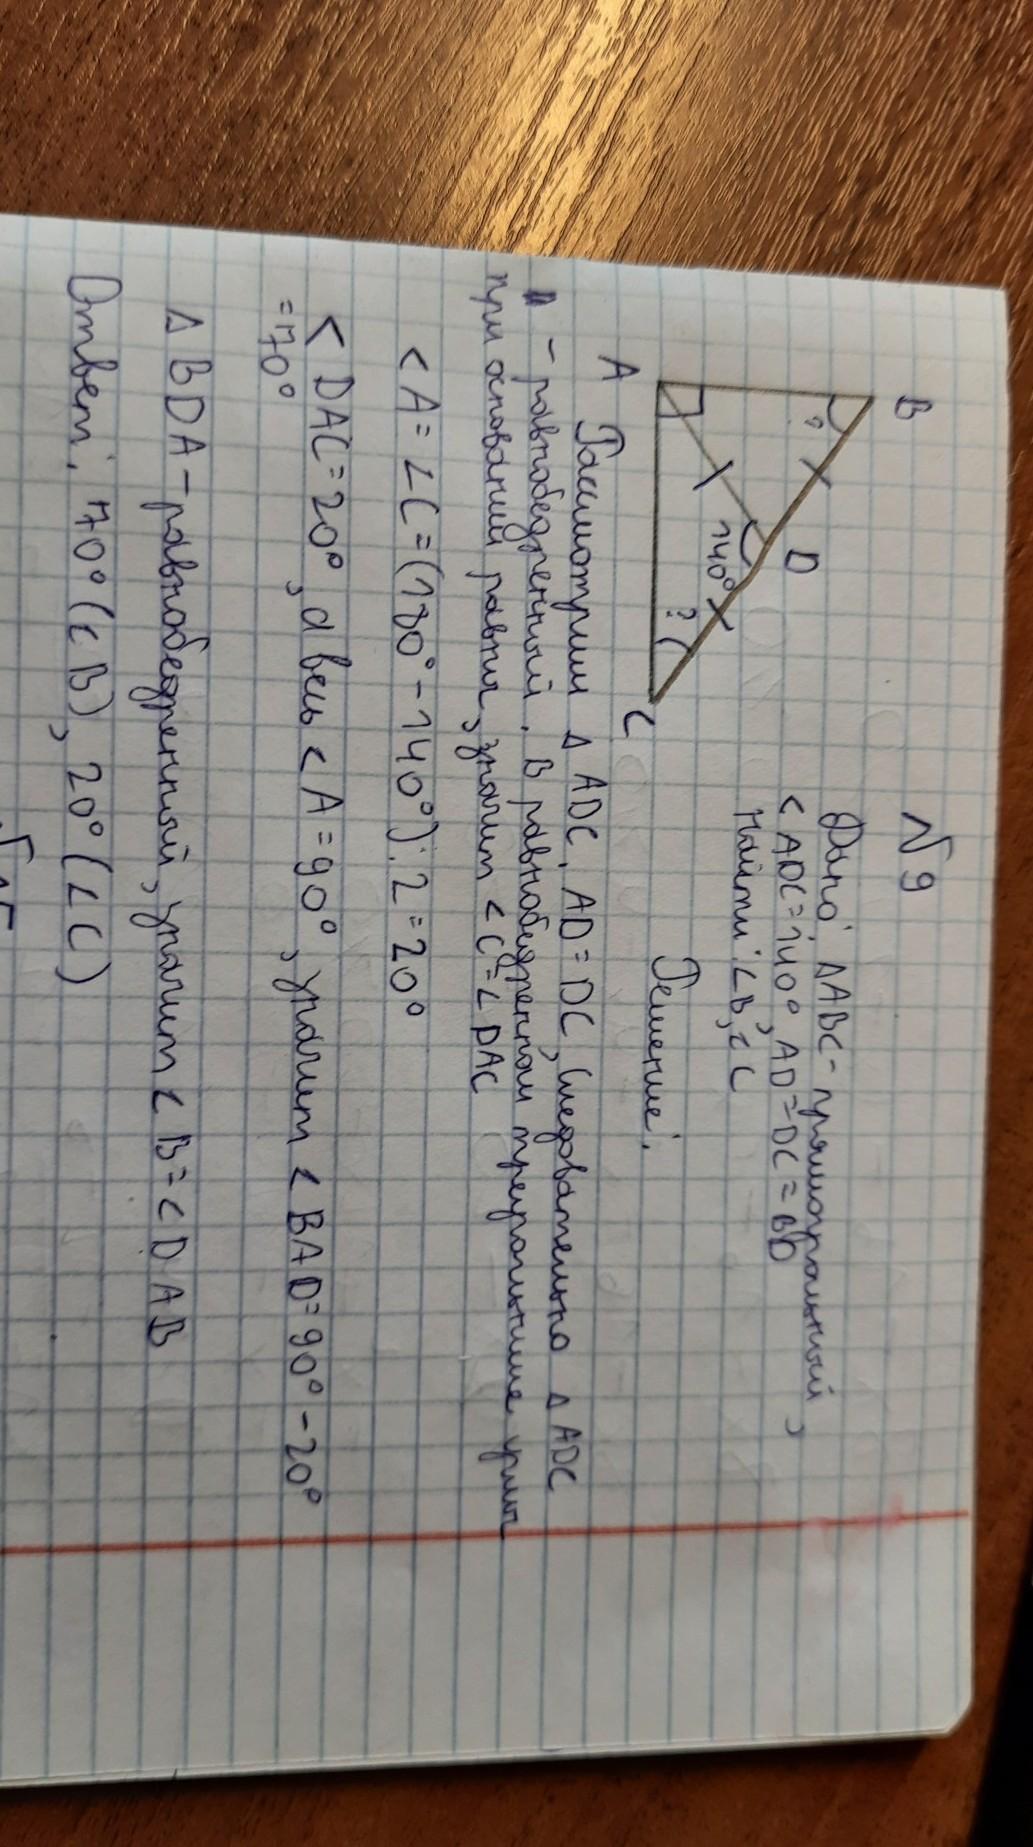 №9
B
D
A
C
?
140°
?
Дано: ΔABC - прямоугольный,
<ADC=140°, AD=DC=BD
Найти: ∠B, ∠C
Решение:
Рассмотрим Δ ADC, AD=DC, следовательно Δ ADC
- равнобедренный. В равнобедренном треугольнике углы
при основании равны, значит <C=∠DAC
<A=∠C=(180°-140°):2=20°
<DAC=20°, а весь <A=90°, значит <BAD=90°-20°
=70°
Δ BDA - равнобедренный, значит <B=<DAB
Ответ: 70°(<B), 20°(∠C)